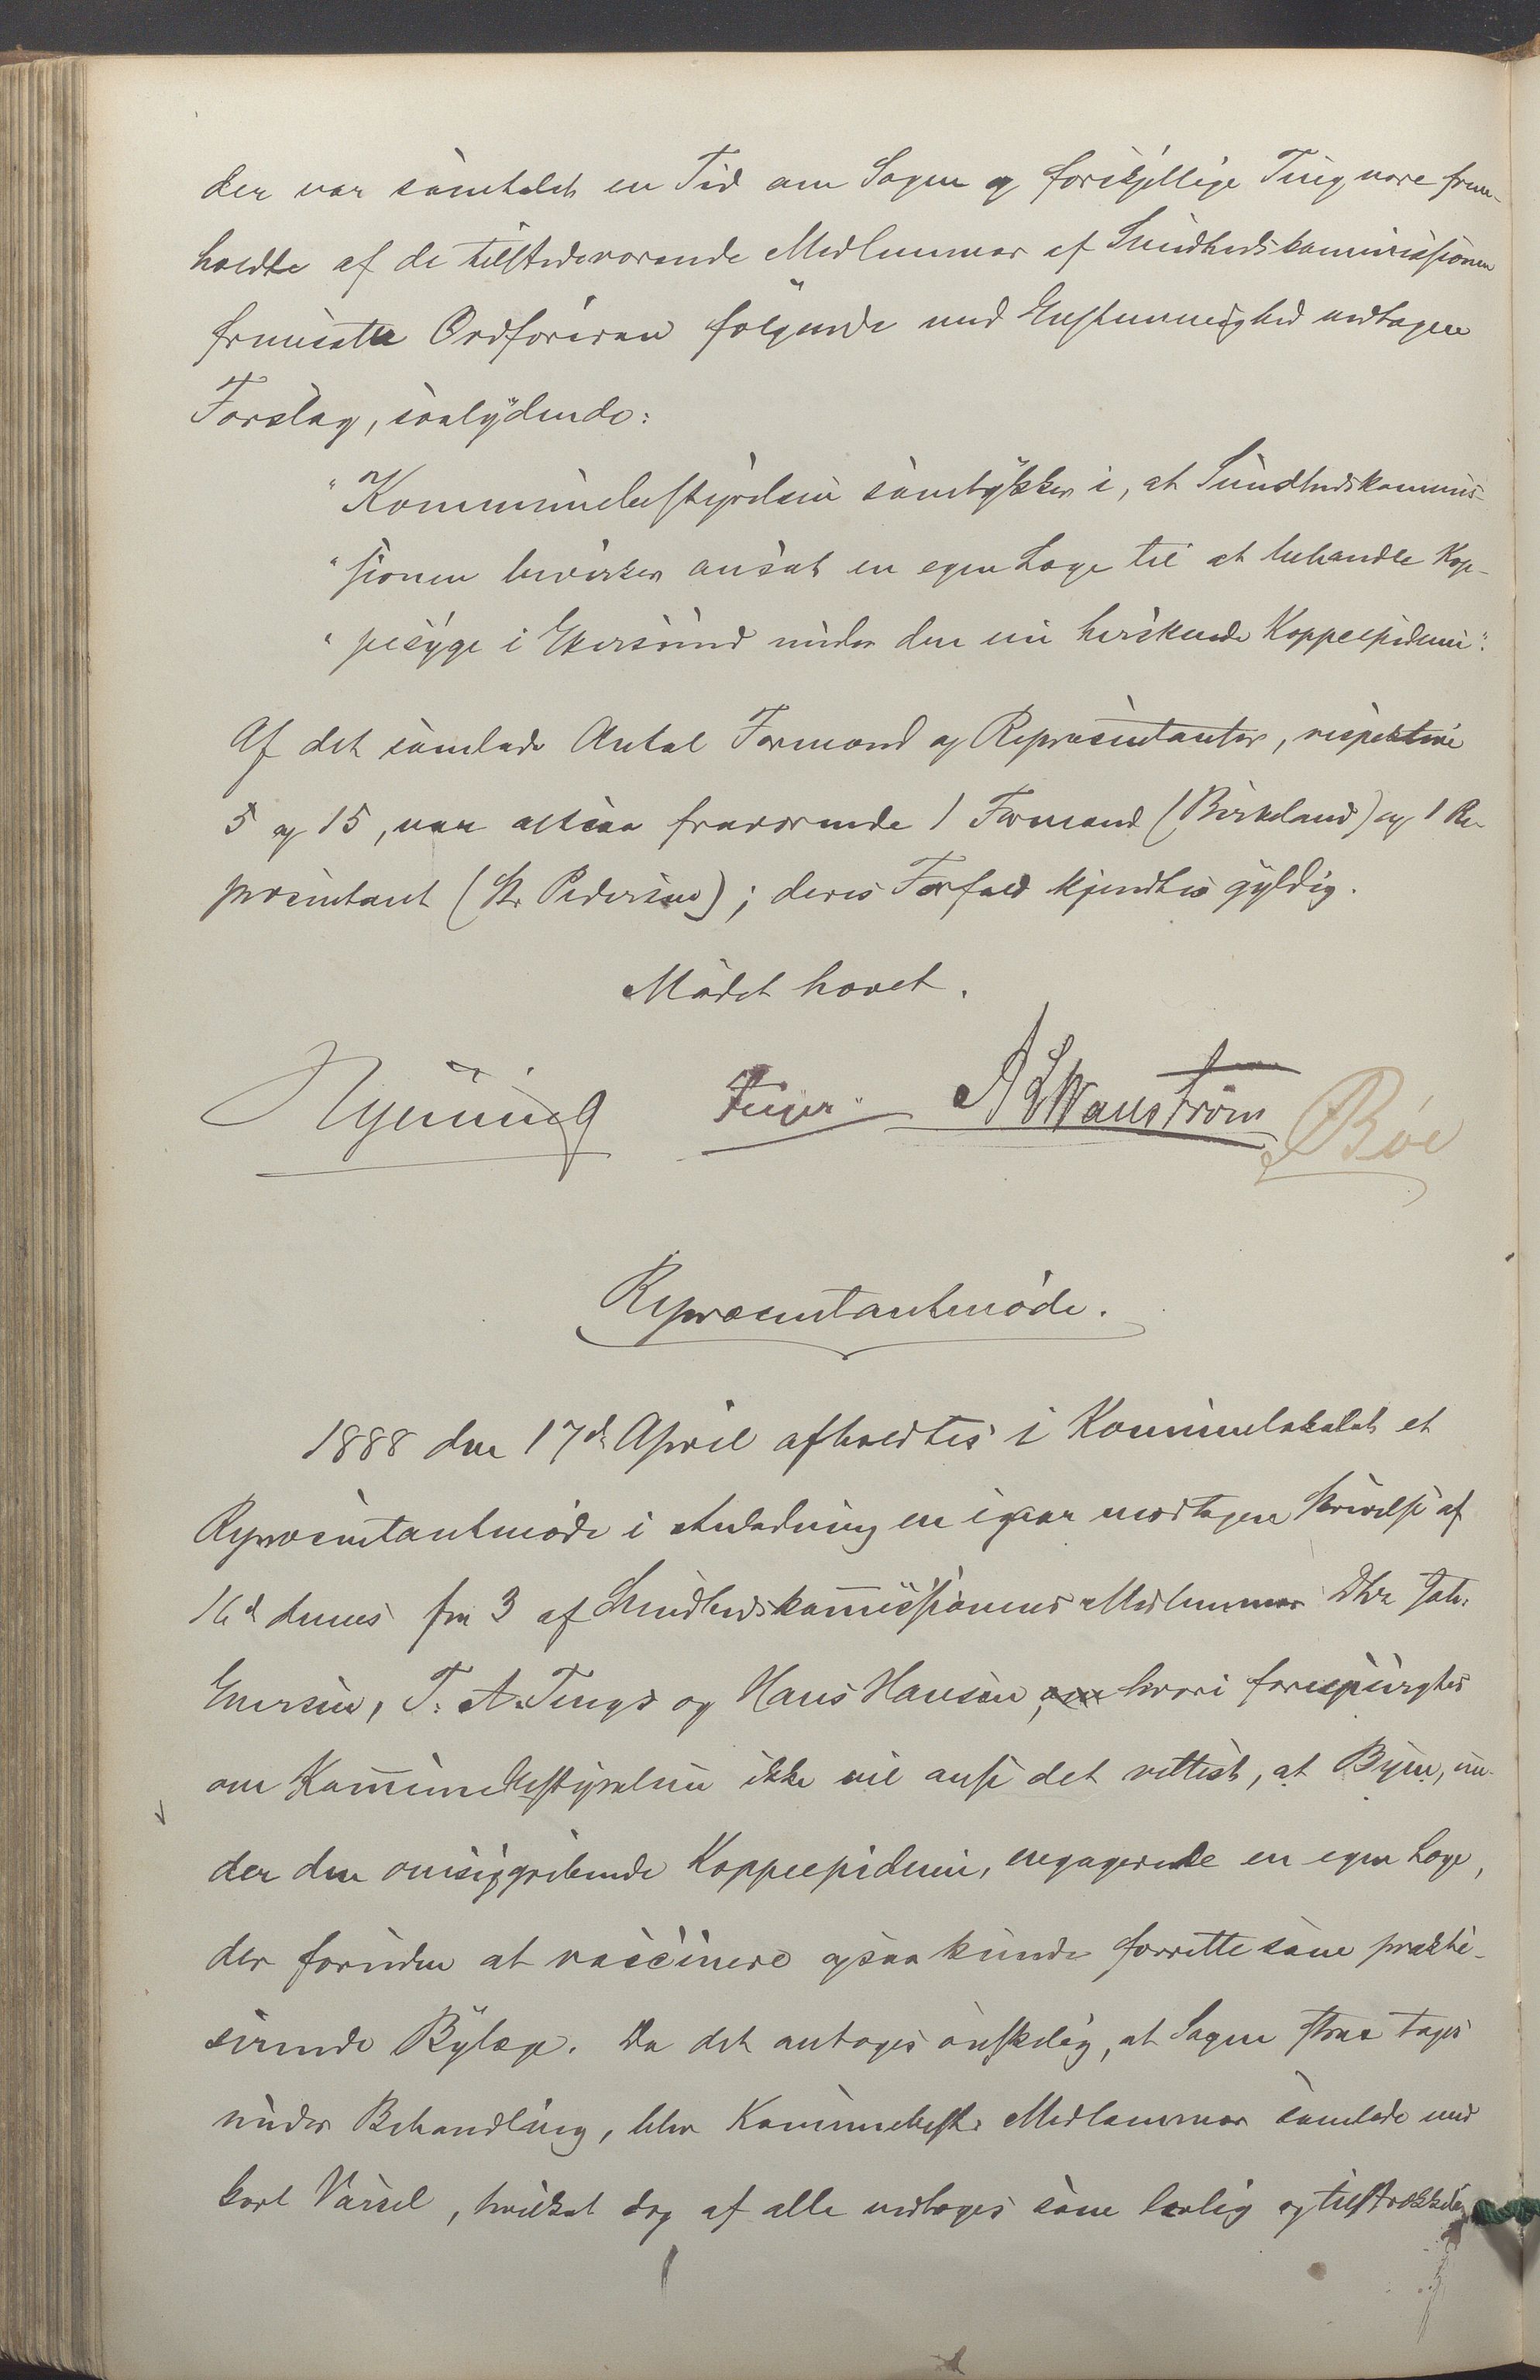 der var samtalet en Tid om Sagen og forskjellige Ting vare frem-
holdte af de tilstedeværende Medlemmer af Sundhedskommissionen
fremsatte Ordføreren følgende med Enstemmighed vedtagne
Forslag, saalydende:
"Kommunebestyrelsen samtykker i, at Sundhedskommis-
"sionen bevirker ansat en egen Læge til at behandle Kop-
"pesyge i Ekersund under den nu herskende Koppeepidemi".
Af det samlede Antal Formænd og Repræsentanter, respektive
5 og 15, var altsaa fraværende 1 Formand (Birkeland) og 1 Re-
præsentant (St. Pedersen); deres Forfald kjendtes gyldig.
Mødet hævet.
Feyer A L Wanstrøm Bøe
Repræsentantmøde.
1888 den 17de April afholdtes i Kommunelokalet et
Repræsentantmøde i Anledning en igaar modtagen Skrivelse af
16d dennes fra 3 af Sundhedskommissionens Medlemmer Dhr Joh.
Enersen, T. A. Tengs og Hans Hansen, hvori forespurgtes
om Kommunebestyrelsen ikke vil anse det rettest, at Byen, un-
der den omsiggribende Koppeepidemi, engagerede en egen Læge,
der foruden at vaccinere ogsaa kunde forrette som prakti-
serende Bylæge. Da det antoges ønskelig, at Sagen strax tages
under Behandling, blev Kommunebest. Medlemmer samlede med
kort Varsel, hvilket dog af alle vedtoges som lovlig og tilstrækkelig